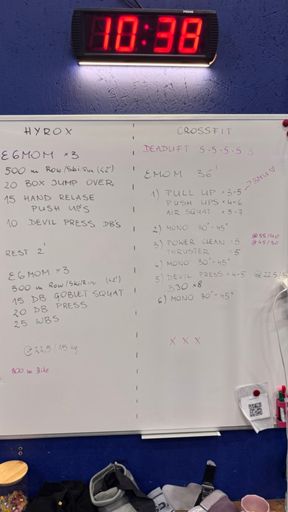 10:38
HYROX
E6MOM × 3
500 m Row/Ski/Run (<2')
20 BOX JUMP OVER
15 HAND RELASE
PUSH UPS
10 DEVIL PRESS DBS
REST 2'
E6MOM × 3
500 m Row/Ski/Run (<2')
15 DB GOBLET SQUAT
20 DB PRESS
25 WBS
@ 22,5 / 15 kg
800 m Bike
CROSSFIT
DEADLIFT 5-5-5-5-5
EMOM 36'
1) PULL UP • 3-5
PUSH UPS • 4-6
AIR SQUAT • 5-7
2) MONO 30"-45"
3) POWER CLEAN • 5
THRUSTER • 5
4) MONO 30"-45"
5) DEVIL PRESS • 4-5
S30 × 8
6) MONO 30"-45"
X X X